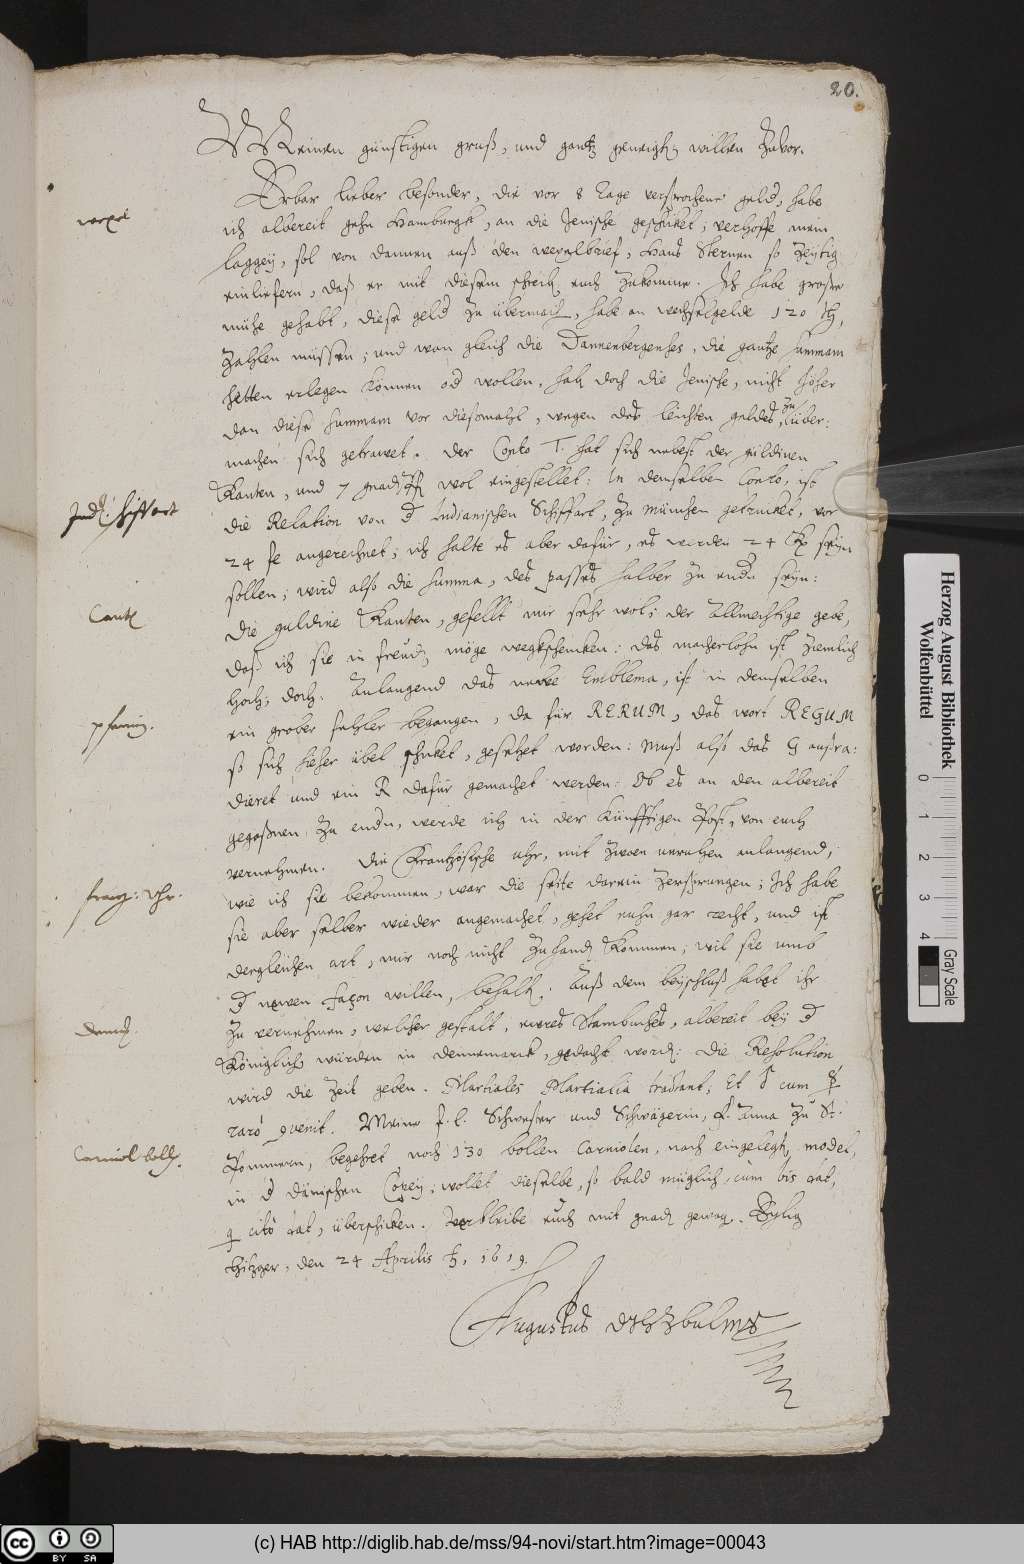 20.
Meinen günstigen gruß, und gantz geneigten willen zuvor.
Erbar lieber besonder, die vor 8 tage versprochene geld, habe
wexel
ich albereit gehn Hamburgk, an die Jenische geschicket, verhoffe mein
laggey, sol von dannen auß den wexelbrief, Hans Sternen so zeytig
einliefern, das er mit diesem schreib. euch zukomme. Ich habe große
mühe gehabt, diese geld zu übermach., habe an wechselgelde 120
zahlen müssen; und wan gleich die Dannenbergenses, die gantze summam
hetten erlegen können od wollen, hab doch die Jenische, nicht höher
dan diese summam vor dießmahl, wegen des leichten geldes, zu über:
machen sich getrawet. Der Conto T. hat sich nebest der güldinen
Kanten, und 7 wol eingestellet: In demselben Conto, ist
Ind. schiffart
die Relation von d Indianischen Schiffart, zu München getrucket, vor
24 fe angerechnet; ich halte es aber dafür, es werden 24 seyn
sollen; wird also die summa, des passes halber zu endn seyn:
Cant.
Die guldine Kanten, gefellt mir sehr wol; der Allmechtige gebe,
daß ich sie in freud. möge wegkschencken: das macherlohn ist ziemlich
hoch; doch. Anlangend das newe Emblema, ist in demselben
pfenning.
ein grober fehler begangen, da für RERUM, das wort REGUM
so sich hieher übel schicket, gesetzet worden: muß also das G außra:
dieret und ein R dafür gemachet werden: Ob es an den albereit
gegoßnen zu endn, werde ich in der künfftigen Post, von euch
vernehmen. Die Frantzösische uhr, mit zween anlangend,
frantz: Vhr.
wie ich sie bekommen, war die seite darein zersprungen; Ich habe
sie aber selber wieder angemachet, gehet nuhn gar recht, und ist
dergleichen art, mir noch nicht zuhand. kommen; wil sie umb
d newen façon willen, behalt. Auß dem beischluß habet ihr
Dennm.
zu vernehmen, welcher gestalt, ewres Stambuches, albereit bey d
Königlich. würden in Dennemarck, gedacht word: die Resolution
wird die zeit geben. Martiales Martialia tractant, et cum
raro Meine f. l. Schwester und Schwägerin, f. Anna zu St:
Carniol boll.
Pommern, begehret noch 130 bollen Carniolen, nach eingelegt. model,
in d dänischen Copey, wollet dieselbe, so bald müglich, cum bis dat,
q cito dat, überschicken. Verbleibe euch mit gnad. gewog. Eylig
Hitzger, den 24 Aprilis 1619.
Augustus
Herzog August Bibliothek
Wolfenbüttel
0 1 2 3 4
Gray Scale
CC BY SA
(c) HAB http://diglib.hab.de/mss/94-novi/start.htm?image=00043